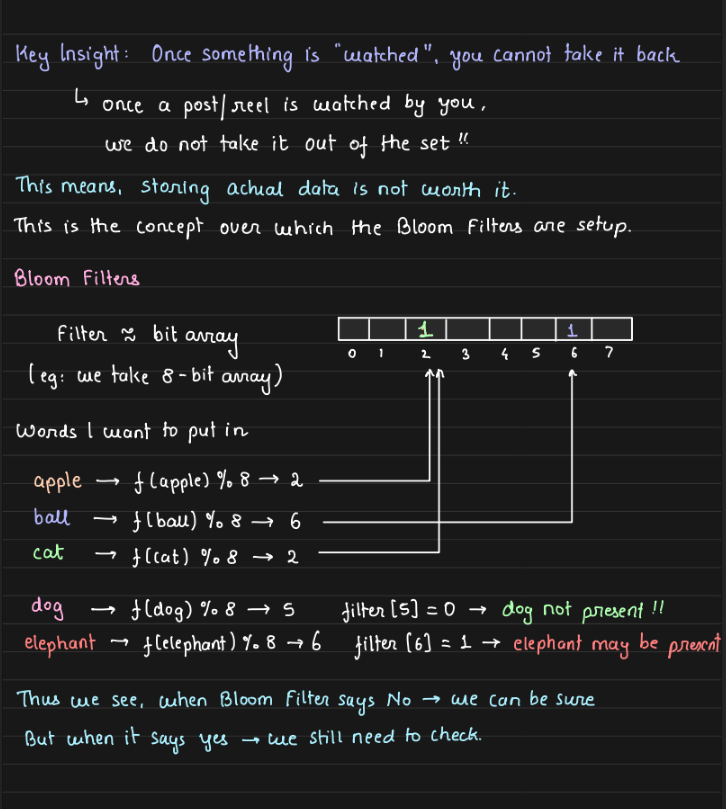 Key Insight: Once something is "watched", you cannot take it back
↳ once a post/reel is watched by you,
we do not take it out of the set !!
This means, storing actual data is not worth it.
This is the concept over which the Bloom Filters are setup.
Bloom Filters
Filter ≈ bit array
(eg: we take 8-bit array)
1 1
0 1 2 3 4 5 6 7
Words I want to put in
apple → f(apple) % 8 → 2
ball → f(ball) % 8 → 6
cat → f(cat) % 8 → 2
dog → f(dog) % 8 → 5 filter[5] = 0 → dog not present !!
elephant → f(elephant) % 8 → 6 filter [6] = 1 → elephant may be present
Thus we see, when Bloom Filter says No → we can be sure
But when it says yes → we still need to check.